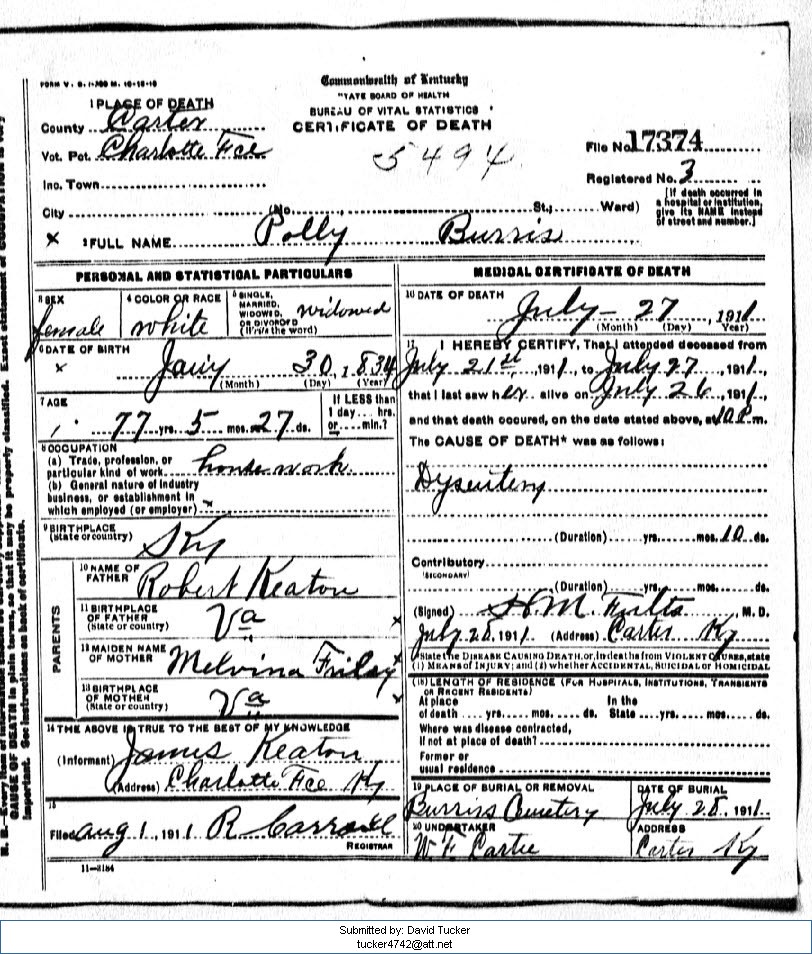 FORM V. S. 1-
Commonwealth of Kentucky
TATE BOARD OF HEALTH
BUREAU OF VITAL STATISTICS
CERTIFICATE OF DEATH
5494
File No. 17374
Registered No. 3
[If death occurred in a hospital or institution, give its NAME instead of street and number.]
1 PLACE OF DEATH
County Carter
Vot. Pct. Charlotte Fce
Inc. Town
City (No. , St., Ward)
x 2 FULL NAME Polly Burris
PERSONAL AND STATISTICAL PARTICULARS
3 SEX
female
4 COLOR OR RACE
white
5 SINGLE, MARRIED, WIDOWED, OR DIVORCED (Write the word)
widowed
6 DATE OF BIRTH
x Jany 30, 1834
(Month) (Day) (Year)
7 AGE
77 yrs. 5 mos. 27 ds.
If LESS than 1 day... hrs. or... min.?
8 OCCUPATION
(a) Trade, profession, or particular kind of work house work
(b) General nature of industry business, or establishment in which employed (or employer) x
9 BIRTHPLACE
(State or country) Ky
PARENTS
10 NAME OF FATHER Robert Keaton
11 BIRTHPLACE OF FATHER (State or country) Va x
12 MAIDEN NAME OF MOTHER Melvina Friley
13 BIRTHPLACE OF MOTHER (State or country) Va
14 THE ABOVE IS TRUE TO THE BEST OF MY KNOWLEDGE
(Informant) James Keaton
(Address) Charlotte Fce Ky
15
Filed Aug 1, 1911 R Carroll
REGISTRAR
11-3184
MEDICAL CERTIFICATE OF DEATH
16 DATE OF DEATH
July 27, 1911
(Month) (Day) (Year)
17 I HEREBY CERTIFY, That I attended deceased from
July 21st, 1911, to July 27, 1911,
that I last saw her alive on July 26, 1911,
and that death occured, on the date stated above, at 10 P m.
The CAUSE OF DEATH* was as follows:
Dysentery
(Duration) yrs. mos. 10 ds.
Contributory
(SECONDARY)
(Duration) yrs. mos. ds.
(Signed) H M. Fults M. D.
July 28, 1911 (Address) Carter Ky
*State the DISEASE CAUSING DEATH, or, in deaths from VIOLENT CAUSES, state
(1) MEANS of INJURY; and (2) whether ACCIDENTAL, SUICIDAL or HOMICIDAL
(18) LENGTH OF RESIDENCE (FOR HOSPITALS, INSTITUTIONS, TRANSIENTS
OR RECENT RESIDENTS)
At place of death yrs. mos. ds. In the State yrs. mos. ds.
Where was disease contracted,
if not at place of death?
Former or
usual residence
19 PLACE OF BURIAL OR REMOVAL
Burris Cemetery
DATE OF BURIAL
July 28, 1911
20 UNDERTAKER
W F Cartee
ADDRESS
Carter Ky
CAUSE OF DEATH in plain terms, so that it may be properly classified. Exact statement of OCCUPATION is very
important. See instructions on back of certificate.
Submitted by: David Tucker
tucker4742@att.net